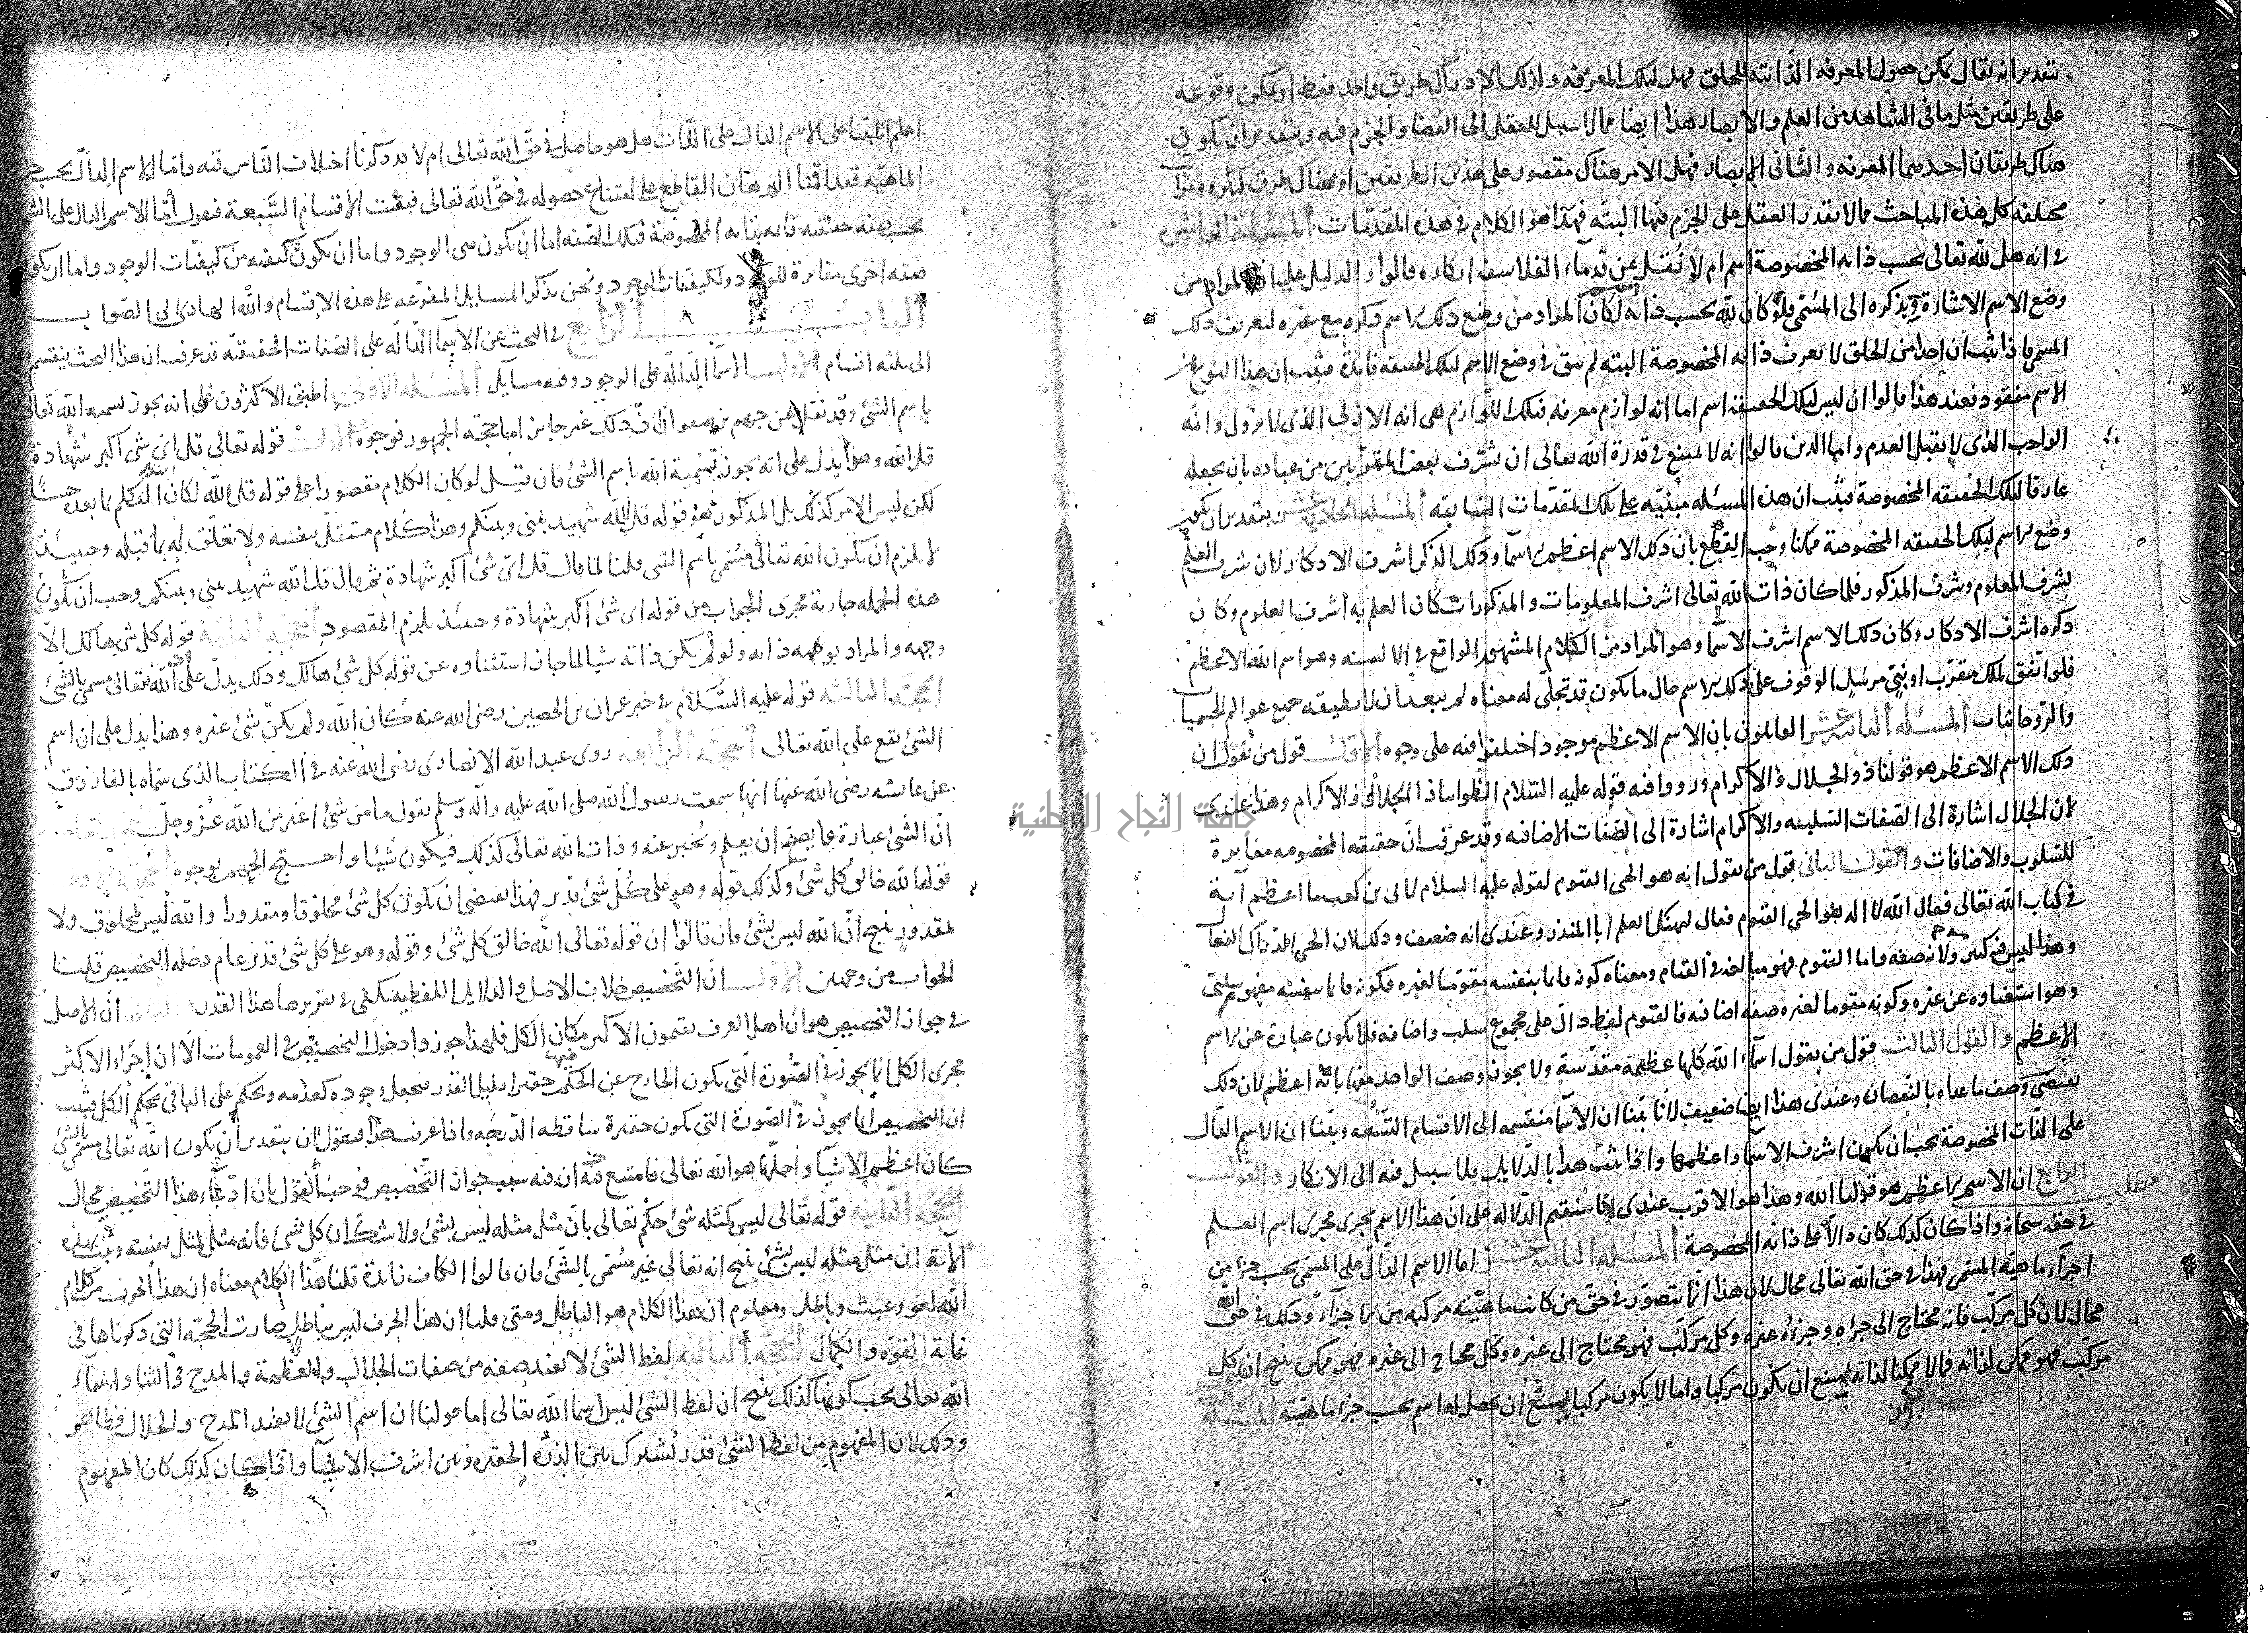 بتقديرانه يقال يمكن حصول المعرفه الذاتيه للخلق فهل لتلك المعرفه ولذلك الادراك طريق واحد فقط او يمكن وقوعه
على طريقين مثل ما فى الشاهد من العلم والابصار هذا ايضا مما لا سبيل للعقل الى القضا والجزم فيه وبتقدير ان يكون
هناك طريقان احدهما المعرفه والثانى الابصار فهل الامر هناك مقصور على هذين الطريقين او هناك طرق كثيره ومراتب
مختلفه كل هذه المباحث مما لا يقدر العقل على الجزم فيها البته فهذا هو الكلام فى هذه المقدمات المسئلة العاشره
فى انه هل لله تعالى بحسب ذاته المخصوصة اسم ام لا نُقل عن قدماء الفلاسفه انكاره قالوا والدليل عليه ان المراد من
وضع الاسم الاشارة بذكره الى المسمى فلو كان لله بحسب ذاته اسم لكان المراد من وضع ذلك الاسم ذكره مع غيره لتعريف ذلك
المسمى فاذا ثبت ان احدا من الخلق لا يعرف ذاته المخصوصة البته لم يبق فى وضع الاسم لتلك الحقيقه فايدة فثبت ان هذا النوع من
الاسم مفقود فعند هذا قالوا ان ليس لتلك الحقيقه اسم اما انه لوازم معرفه فتلك اللوازم هى انه الازلى الذى لا يزول وانه
الواجب الذى لا يقبل العدم واما الذين قالوا انه لا يمتنع فى قدرة الله تعالى ان شرّف بعض المقربين من عباده بان يجعله
عارفا بتلك الحقيقه المخصوصة فثبت ان هذه المسئله مبنيه على تلك المقدمات السابقه المسئله الحادية عشر بتقدير ان يكون
وضع الاسم لتلك الحقيقه المخصوصة ممكنا وجب القطع بان ذلك الاسم اعظم الاسما وذلك الذكر اشرف الاذكار لان شرف العلم
بشرف المعلوم وشرف المذكور فلما كان ذات الله تعالى اشرف المعلومات والمذكورات كان العلم به اشرف العلوم وكان
ذكره اشرف الاذكار وكان ذلك الاسم اشرف الاسما وهو المراد من الكلام المشهور الواقع فى الالسنه وهو اسم الله الاعظم
فلو اتفق لملك مقرّب او نبى مرسل الوقوف على ذلك الاسم حال ما يكون قد تجلّى له معناه لم يبعد ان لا يطيقه جميع عوالم الجسميات
والروحانيات المسئله الثانيه عشر القائلون بان الاسم الاعظم موجود اختلفوا فيه على وجوه الاول قول من يقول ان
ذلك الاسم الاعظم هو قولنا ذو الجلال والاكرام ورووا فيه قوله عليه السلام الظوا بياذا الجلال والاكرام وهذا عندى
لان الجلال اشارة الى الصفات السلبيه والاكرام اشارة الى الصفات الاضافيه وقد عرفت انّ حقيقته المخصوصه مغايرة
للسلوب والاضافات والقول الثانى قول من يقول انه هو الحى القيوم لقوله عليه السلام لابى بن كعب ما اعظم آية
فى كتاب الله تعالى فقال الله لا اله الا هو الحى القيوم فقال ليهنك العلم ابا المنذر وعندى انه ضعيف وذلك لان الحى الدرّاك الفعال
وهذا ليس فيه كبير صفه واما القيوم فهو مبالغه فى القيام ومعناه كونه قائما بنفسه مقوما لغيره فكونه قائما بنفسه مفهوم سلبى
وهو استغناوه عن غيره وكونه مقوما لغيره صفه اضافيه فالقيوم لفظ دال على مجموع سلب واضافه فلا يكون عبارة عن الاسم
الاعظم والقول الثالث قول من يقول اسماء الله كلها عظيمه مقدّسة ولا يجوز وصف الواحد منها بانه اعظم لان ذلك
يقتضى وصف ما عداه بالنقصان وعندى هذا ايضا ضعيف لانا بيّنا ان الاسما منقسمه الى الاقسام التسعه وبيّنا ان الاسم الدال
على الذات المخصوصة يجب ان يكون اشرف الاسما واعظمها واذا ثبت هذا بالدلايل فلا سبيل فيه الى الانكار والقول
الرابع ان الاسم الاعظم هو قولنا الله وهذا هو الاقرب عندى لانا سنقيم الدلاله على انّ هذا الاسم يجرى مجرى اسم العلم
فى حقه سبحانه واذا كان كذلك كان دالاّ على ذاته المخصوصة المسئله الثالثه عشر اما الاسم الدالّ على المسمى بحسب جزء من
اجزاء ماهيّة المسمى فهذا فى حق الله تعالى محال لان هذا انما يتصوّر فى حقّ من كانت ماهيّته مركبه من الاجزاء وذلك فى حقّ الله
محال لان كل مركّب فانه محتاج الى جزءه وجزؤه غيره وكل مركب فهو محتاج الى غيره وكل محتاج الى غيره فهو ممكن ينتج ان كل
مركّب فهو ممكن لذاته فما لا يكون ممكنا لذاته يمتنع ان يكون مركبا واما لا يكون مركبا يمتنع ان يحصل له اسم بحسب جزء ماهيّته المسئلة الرابعة عشر
اعلم انا بيّنا على الاسم الدال على الذات هل هو حاصل فى حق الله تعالى ام لا قد ذكرنا اختلاف الناس فيه واما الاسم الدالّ بحسب جزء
الماهيّه فقد اقمنا البرهان القاطع على امتناع حصوله فى حق الله تعالى فبقيت الاقسام السّبعة فنقول أمّا الاسم الدال على الشئ
بحسب صفه حقيقيه قايمه بذاته المخصوصة فتلك الصفه اما ان يكون هى الوجود واما ان يكون كيفيه من كيفيّات الوجود واما ان يكون
صفه اخرى مغايرة للوجود ولكيفيات الوجود ونحن نذكر المسايل المفرّعه على هذه الاقسام والله الهادى الى الصواب
البــاب الرابع فى البحث عن الاسماء الدالّه على الصفات الحقيقيّه قد عرفت ان هذا البحث ينقسم
الى ثلثه اقسام الاول الاسما الدالّه على الوجود وفيه مسايل المسئله الاولى اطبق الاكثرون على انه يجوز تسميه الله تعالى
باسم الشئ وقد نقل عن جهم بن صفوان انّ ذلك غير جايز اما حجة الجمهور فوجوه الاول قوله تعالى قل اى شى اكبر شهادة
قل الله وهو يدل على انه يجوز تسمية الله باسم الشئ فان قيل لو كان الكلام مقصورا على قوله قل الله لكان الكلم بما بعده حسنا
لكن ليس الامر كذلك بل المذكور هو قوله قل الله شهيد بينى وبينكم وهذا كلام مستقل بنفسه ولا تعلّق له بما قبله وحينئذ
لا يلزم ان يكون الله تعالى مسمّى باسم الشى قلنا لما قال قل اىّ شئ اكبر شهادة ثم قال قل الله شهيد بينى وبينكم وجب ان يكون
هذه الجمله جارية مجرى الجواب من قوله اى شئ اكبر شهادة وحينئذ يلزم المقصود الحجّه الثانية قوله كل شى هالك الاّ
وجهه والمراد بوجهه ذاته ولو لم يكن ذاته شيا لما جاز استثناوه عن قوله كل شئ هالك وذلك يدلّ على ان الله تعالى مسمى بالشئ
الحجّة الثالثة قوله عليه السّلام فى خبر عمران بن الحصين رضى الله عنه كان الله ولم يكن شئ غيره وهذا يدل على ان اسم
الشئ يقع على الله تعالى الحجّة الرابعة روى عبد الله الانصارى رضى الله عنه فى الكتاب الذى سمّاه بالفاروق
عن عائشه رضى الله عنها انها سمعت رسول الله صلى الله عليه وآله وسلم يقول ما من شئ اغير من الله عزّ وجلّ
انّ الشئ عبارة عما يصح ان يعلم ويُخبر عنه وذات الله تعالى كذلك فيكون شيئا واحتج الجهم بوجوه
قوله الله خالق كل شئ وكذلك قوله وهو على كل شئ قدير فهذا يقتضى ان يكون كل شئ مخلوقا ومقدورا والله ليس لمخلوق ولا
لمقدور ينتج انّ الله ليس بشئ فان قالوا ان قوله تعالى الله خالق كل شئ وقوله وهو على كل شئ قدير عام دخله التخصيص قلنا
الجواب من وجهين الاول انّ التخصيص خلاف الاصل والدلايل اللفظيه يكفى فى تقريرها هذا القدر انّ الاصل
فى جواز التخصيص هو ان اهل العرف يقيمون الاكثر مكان الكل فلهذا جوزوا دخول التخصيص فى العمومات الاّ ان اجراء الاكثر
مجرى الكل انما يجوز فى الصّورة التى يكون الخارج عن الحكم حقيرا قليل القدر فيجعل وجوده كعدمه ويحكم على الباقى بحكم الكل فثبت
ان التخصيص انما يجوز فى الصّورة التى يكون حقيرة ساقطه الدّرجه فاذا عرفت هذا فنقول ان بتقدير أن يكون الله تعالى مسمى بالشئ
كان اعظم الاشيآ واجلها هو الله تعالى فامتنع فيه ان يحصل فيه جواز التخصيص فوجب القول بان ادّعاء هذا التخصيص محال
الحجّة الثانية قوله تعالى ليس كمثله شئ حكم تعالى بانّ مثل مثله ليس بشئ ولا شك ان كل شئ فانه مثل لمثل نفسه وثبت بهذه
الآية ان مثل مثله ليس بشئ ينتج انه تعالى غير مُسمّى بالشّئ فان قالوا الكاف زايدة قلنا هذا الكلام معناه ان هذا الحرف من كلام
الله لغو وعبث وباطل ومعلوم ان هذا الكلام هو الباطل ومتى قلنا ان هذا الحرف ليس بباطل صارت الحجّة التى ذكرناها فى
غاية القوة والكمال الحجّة الثالثة لفظ الشئ لا يفيد صفه من صفات الجلال والعظمة والمدح فى الثنا واسماء
الله تعالى يجب كونها كذلك ينتج ان لفظ الشئ ليس اسما الله تعالى اما قولنا ان اسم الشئ لا يفيد المدح والجلال فظاهر
وذلك لان المفهوم من لفظ الشئ قدر مُشترك بين الذرّه الحقيره وبين اشرف الاشيآ واذا كان كذلك كان المفهوم
جامعة النجاح الوطنية